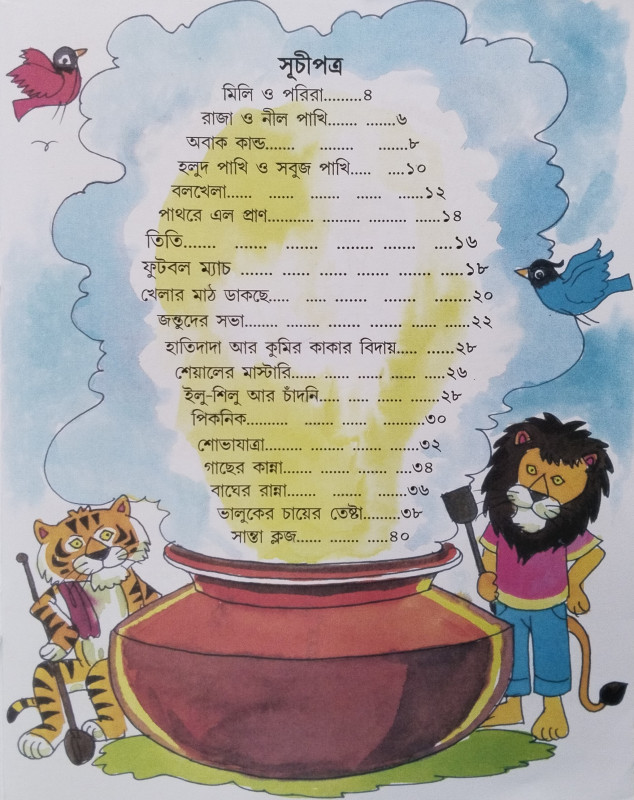 সূচীপত্র
মিলি ও পরিরা.........৪
রাজা ও নীল পাখি....... .......৬
অবাক কান্ড....... ........ .......৮
হলুদ পাখি ও সবুজ পাখি..... ....১০
বলখেলা....... ...... ....... ....... ......১২
পাথরে এল প্রাণ........ ......... ......... ......১৪
তিতি....... ....... ....... ....... ....... ....১৬
ফুটবল ম্যাচ ....... ..... ...... ....... ...... .....১৮
খেলার মাঠ ডাকছে..... ..... ....... ....... .......২০
জন্তুদের সভা........ ........ ....... ........ ...... ......২২
হাতিদাদা আর কুমির কাকার বিদায়..... .......২৮
শেয়ালের মাস্টারি...... ....... ...... ...... .....২৬
ইলু-শিলু আর চাঁদনি..... ..... ...... ......২৮
পিকনিক.......... ....... ...... ......৩০
শোভাযাত্রা........ ........ ....... ......৩২
গাছের কান্না....... ...... ...... ....৩৪
বাঘের রান্না....... ........ .......৩৬
ভালুকের চায়ের তেষ্টা.........৩৮
সান্তা ক্লজ...... ...... .....৪০